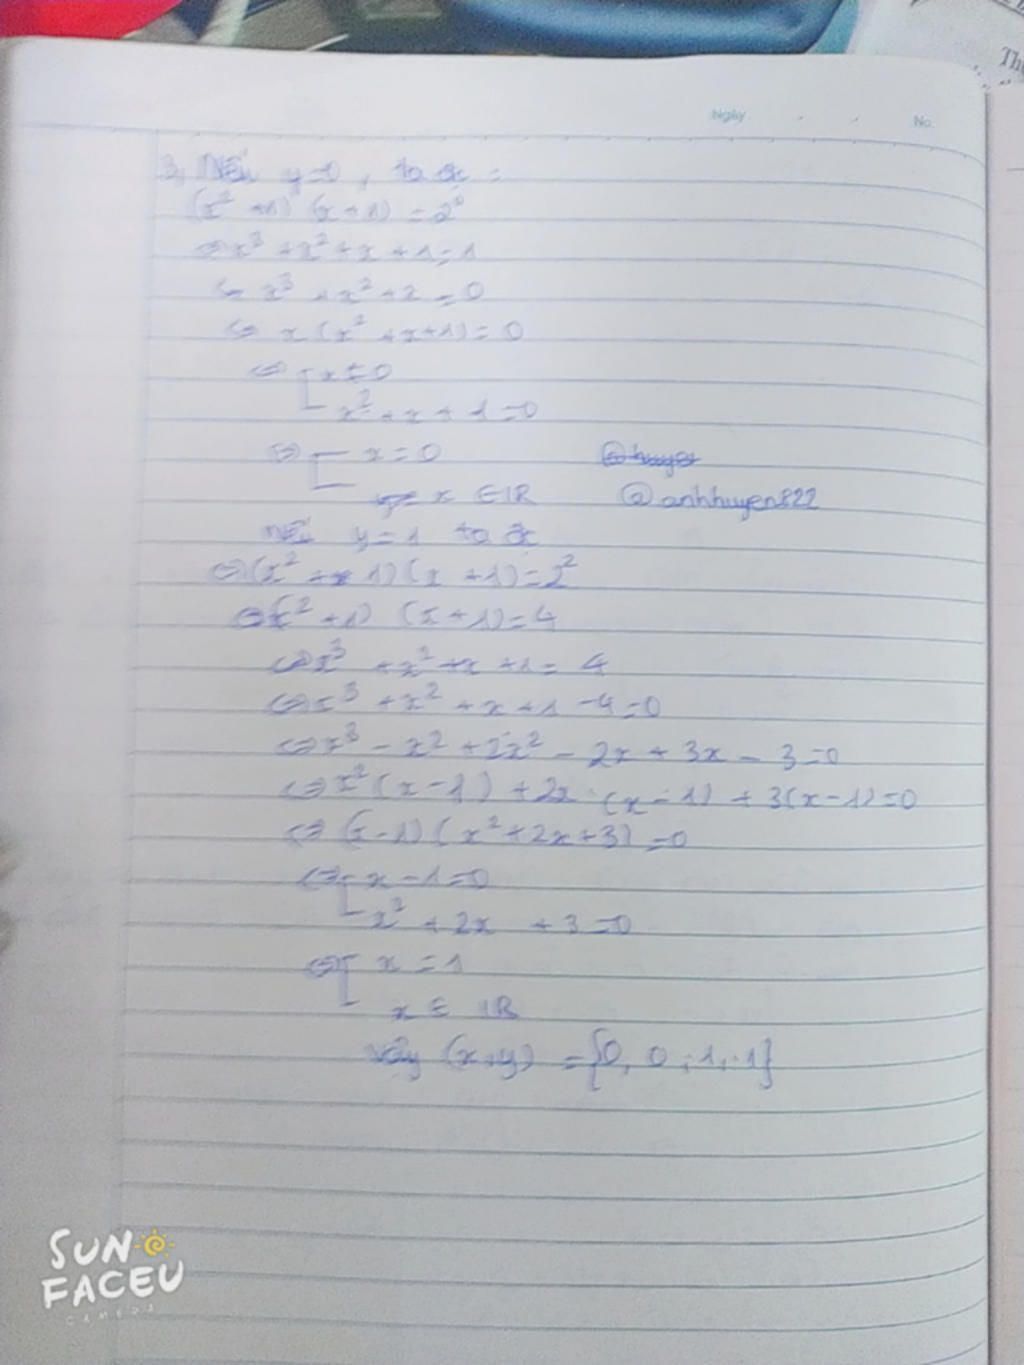 Thu
Ngày No.
3, Nếu y=0, ta đc:
(x² +1) (x+1) = 2⁰
⇔ x³ + x² + x + 1 = 1
⇔ x³ + x² + x = 0
⇔ x (x² + x+1) = 0
⇔ x = 0
x² + x + 1 = 0
⇔ x = 0
x ∈ IR @anhhuyen822
Nếu y=1 ta đc
⇔ (x² + 1) (x +1) = 2²
⇔ (x² +1) (x+1) = 4
⇔ x³ + x² + x + 1 = 4
⇔ x³ + x² + x + 1 - 4 = 0
⇔ x³ - x² + 2x² - 2x + 3x - 3 = 0
⇔ x² (x-1) + 2x.(x-1) + 3(x-1) = 0
⇔ (x-1) (x²+2x+3) = 0
⇔ x - 1 = 0
x² + 2x + 3 = 0
⇔ x = 1
x ∈ IR
Vậy (x,y) = {0, 0; 1, 1}
SUN
FACEU
CAMERA